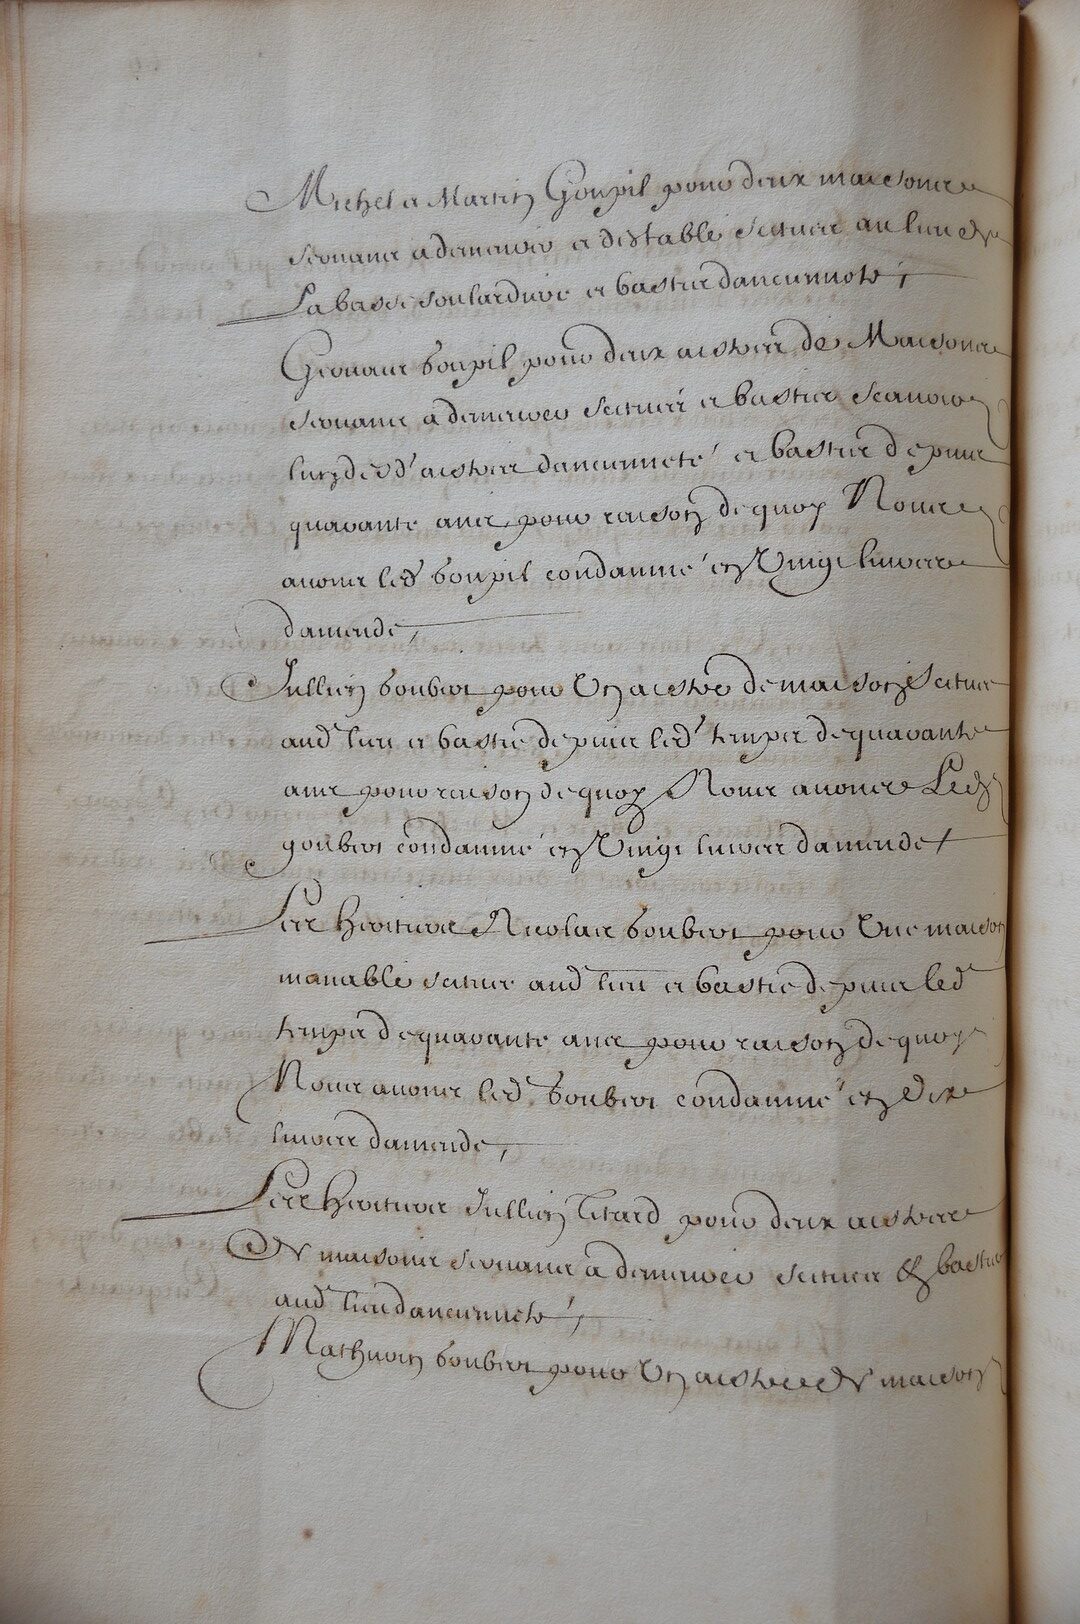 Michel et Martin Goupil pour deux maisons
servans a demeurer et d'estable scituez au lieu de
La basse soulardiere et bastie d'ancienneté,
Gervais Goupil pour deux aistres de Maisons
servans a demeurer scituez et bastie scavoir
lun desd' aistres d'ancienneté et bastie depuis
quarante ans pour raison de quoy Nous
avons led Goupil condamné en Vingt livres
damende,
Jullien Goubert pour Un aistre de maison scitué
aud lieu et bastie depuis led' temps de quarante
ans pour raison de quoy Nous avons Led
goubert condamné en Vingt livres damende
Les heritiers Nicolas Goubert pour Une maison
manable scituee aud lieu et bastie depuis led
temps de quarante ans pour raison de quoy
Nous avons led Goubert condamné en dix
livres damende,
Les heritiers Jullien Titard pour deux aistres
de maisons servans a demeurer scituez et bastis
aud lieu dancienneté,
Mathurin Goubert pour Un aistre de maison